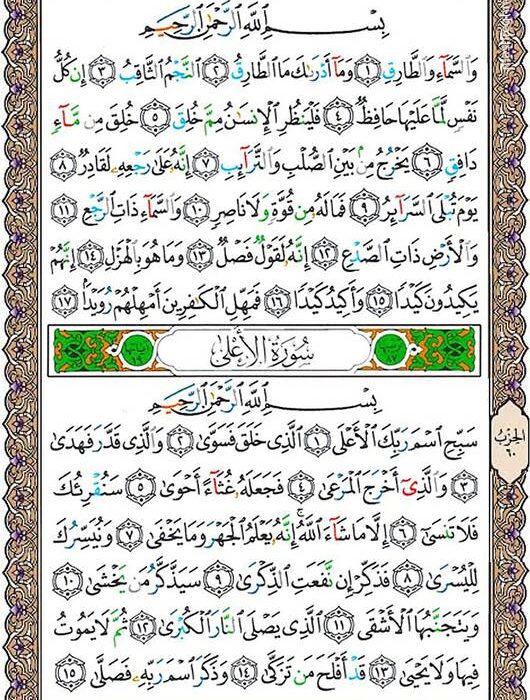 بِسْمِ ٱللَّهِ ٱلرَّحْمَٰنِ ٱلرَّحِيمِ
وَٱلسَّمَآءِ وَٱلطَّارِقِ ١ وَمَآ أَدْرَىٰكَ مَا ٱلطَّارِقُ ٢ ٱلنَّجْمُ ٱلثَّاقِبُ ٣ إِن كُلُّ
نَفْسٍ لَّمَّا عَلَيْهَا حَافِظٌ ٤ فَلْيَنظُرِ ٱلْإِنسَٰنُ مِمَّ خُلِقَ ٥ خُلِقَ مِن مَّآءٍ
دَافِقٍ ٦ يَخْرُجُ مِنۢ بَيْنِ ٱلصُّلْبِ وَٱلتَّرَآئِبِ ٧ إِنَّهُۥ عَلَىٰ رَجْعِهِۦ لَقَادِرٌ ٨
يَوْمَ تُبْلَى ٱلسَّرَآئِرُ ٩ فَمَا لَهُۥ مِن قُوَّةٍ وَلَا نَاصِرٍ ١٠ وَٱلسَّمَآءِ ذَاتِ ٱلرَّجْعِ ١١
وَٱلْأَرْضِ ذَاتِ ٱلصَّدْعِ ١٢ إِنَّهُۥ لَقَوْلٌ فَصْلٌ ١٣ وَمَا هُوَ بِٱلْهَزْلِ ١٤ إِنَّهُمْ
يَكِيدُونَ كَيْدًا ١٥ وَأَكِيدُ كَيْدًا ١٦ فَمَهِّلِ ٱلْكَٰفِرِينَ أَمْهِلْهُمْ رُوَيْدًۢا ١٧
سُورَةُ ٱلْأَعْلَىٰ
بِسْمِ ٱللَّهِ ٱلرَّحْمَٰنِ ٱلرَّحِيمِ
سَبِّحِ ٱسْمَ رَبِّكَ ٱلْأَعْلَى ١ ٱلَّذِى خَلَقَ فَسَوَّىٰ ٢ وَٱلَّذِى قَدَّرَ فَهَدَىٰ
٣ وَٱلَّذِىٓ أَخْرَجَ ٱلْمَرْعَىٰ ٤ فَجَعَلَهُۥ غُثَآءً أَحْوَىٰ ٥ سَنُقْرِئُكَ
فَلَا تَنسَىٰٓ ٦ إِلَّا مَا شَآءَ ٱللَّهُ ۚ إِنَّهُۥ يَعْلَمُ ٱلْجَهْرَ وَمَا يَخْفَىٰ ٧ وَنُيَسِّرُكَ
لِلْيُسْرَىٰ ٨ فَذَكِّرْ إِن نَّفَعَتِ ٱلذِّكْرَىٰ ٩ سَيَذَّكَّرُ مَن يَخْشَىٰ ١٠
وَيَتَجَنَّبُهَا ٱلْأَشْقَى ١١ ٱلَّذِى يَصْلَى ٱلنَّارَ ٱلْكُبْرَىٰ ١٢ ثُمَّ لَا يَمُوتُ
فِيهَا وَلَا يَحْيَىٰ ١٣ قَدْ أَفْلَحَ مَن تَزَكَّىٰ ١٤ وَذَكَرَ ٱسْمَ رَبِّهِۦ فَصَلَّىٰ ١٥
الحزب
٦٠